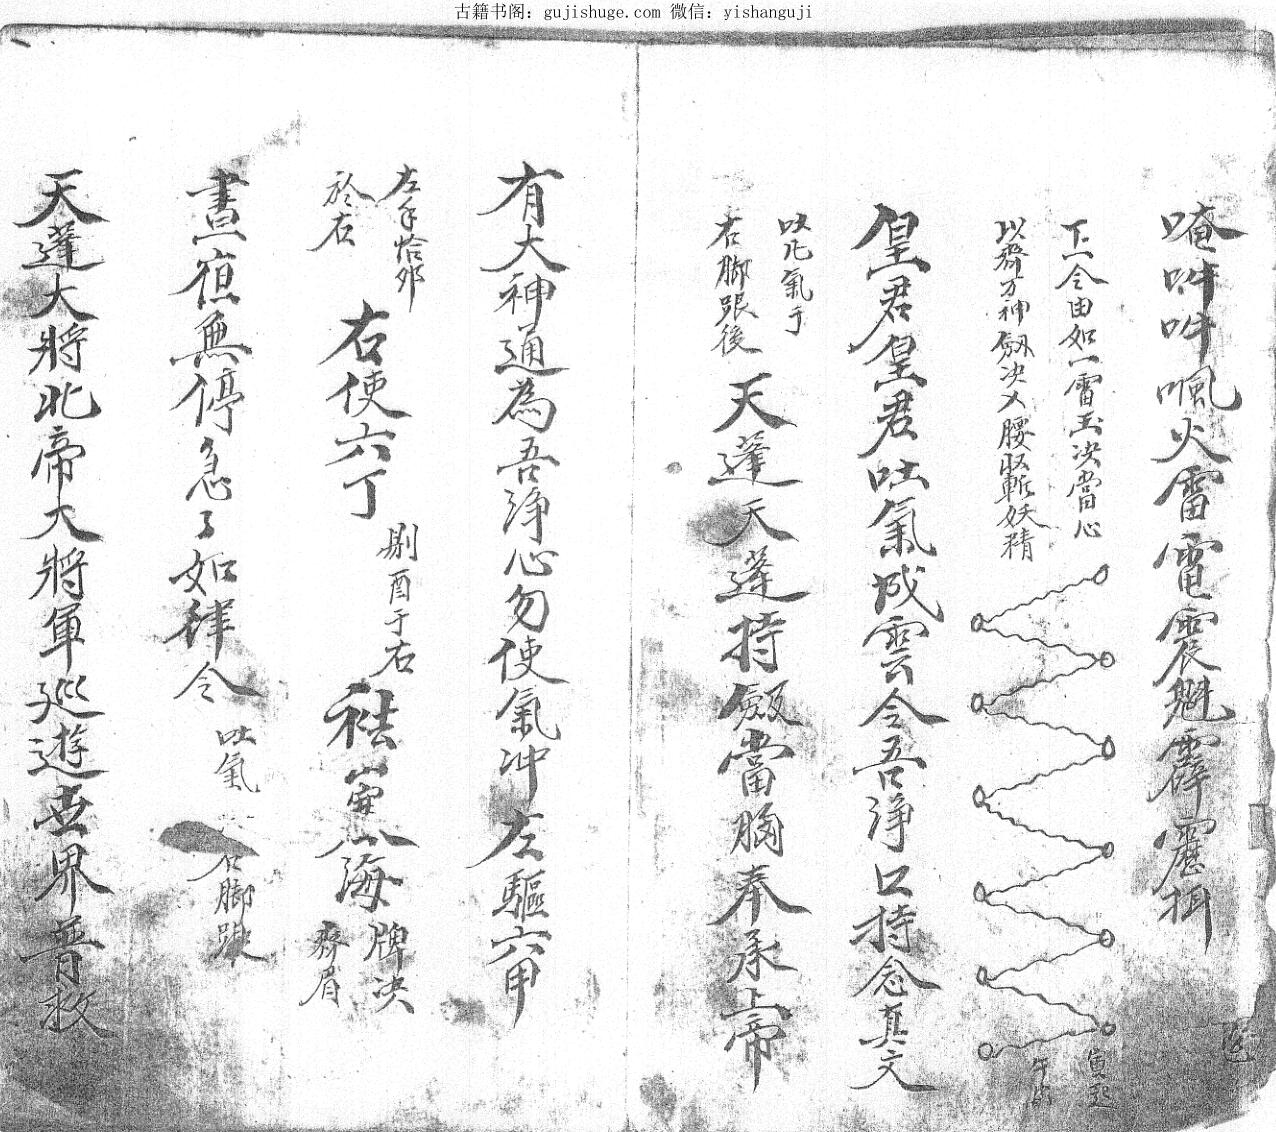 古籍书阁：gujishuge.com 微信：yishanguji
唵吽吽㗾火雷電震魁霹靂揖
下一令由如一雷玉决當心
以齋万神劔决入腰收斬妖精
寅起
午
皇君皇君吐氣成雲令吾淨口持念真文
以北氣于
右脚跟後
天蓬天蓬持劔當胸奉承上帝
有大神通為吾淨心勿使氣冲左驅六甲
左手恰卯
於右
右使六丁
剔酉于右
祛 海
牌决
齊眉
晝夜無停急了如律令
吐氣
右脚跟
天蓬大將北帝大將軍巡遊世界普救